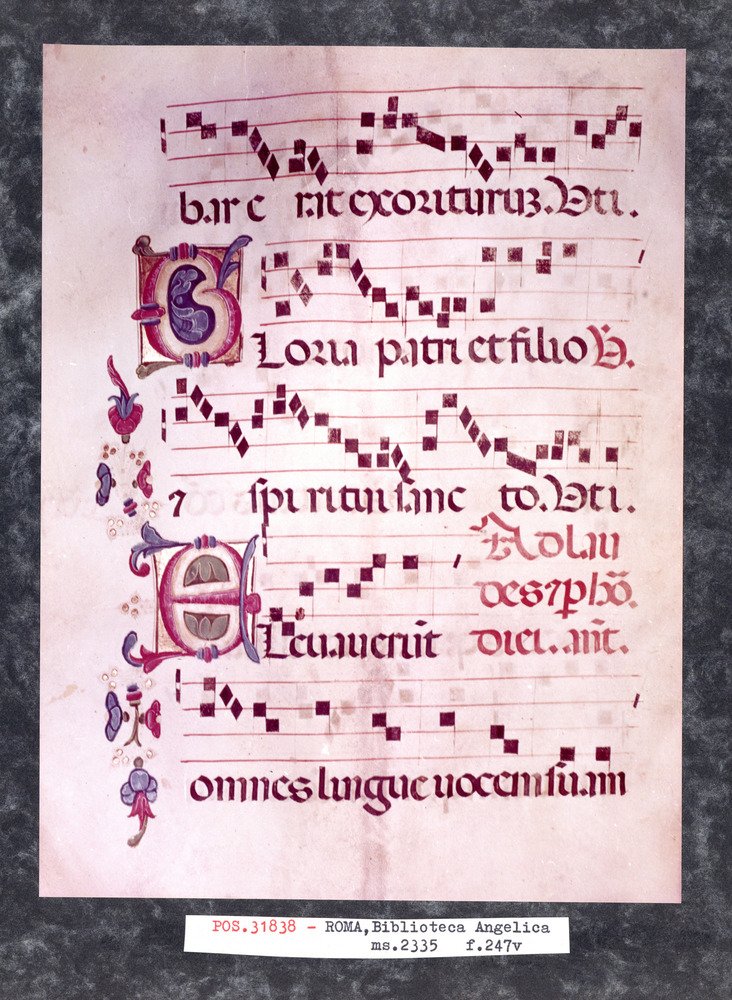 bare rit exorituruz. Uti.
Gloria patri et filio V̄.
⁊ spiritui sanc to. Uti.
Ad lau
des ⁊ pho͞.
Eleuauerūt diei. ant̄.
omnes lingue uocem suam
POS.31838 - ROMA,Biblioteca Angelica
ms.2335 f.247v